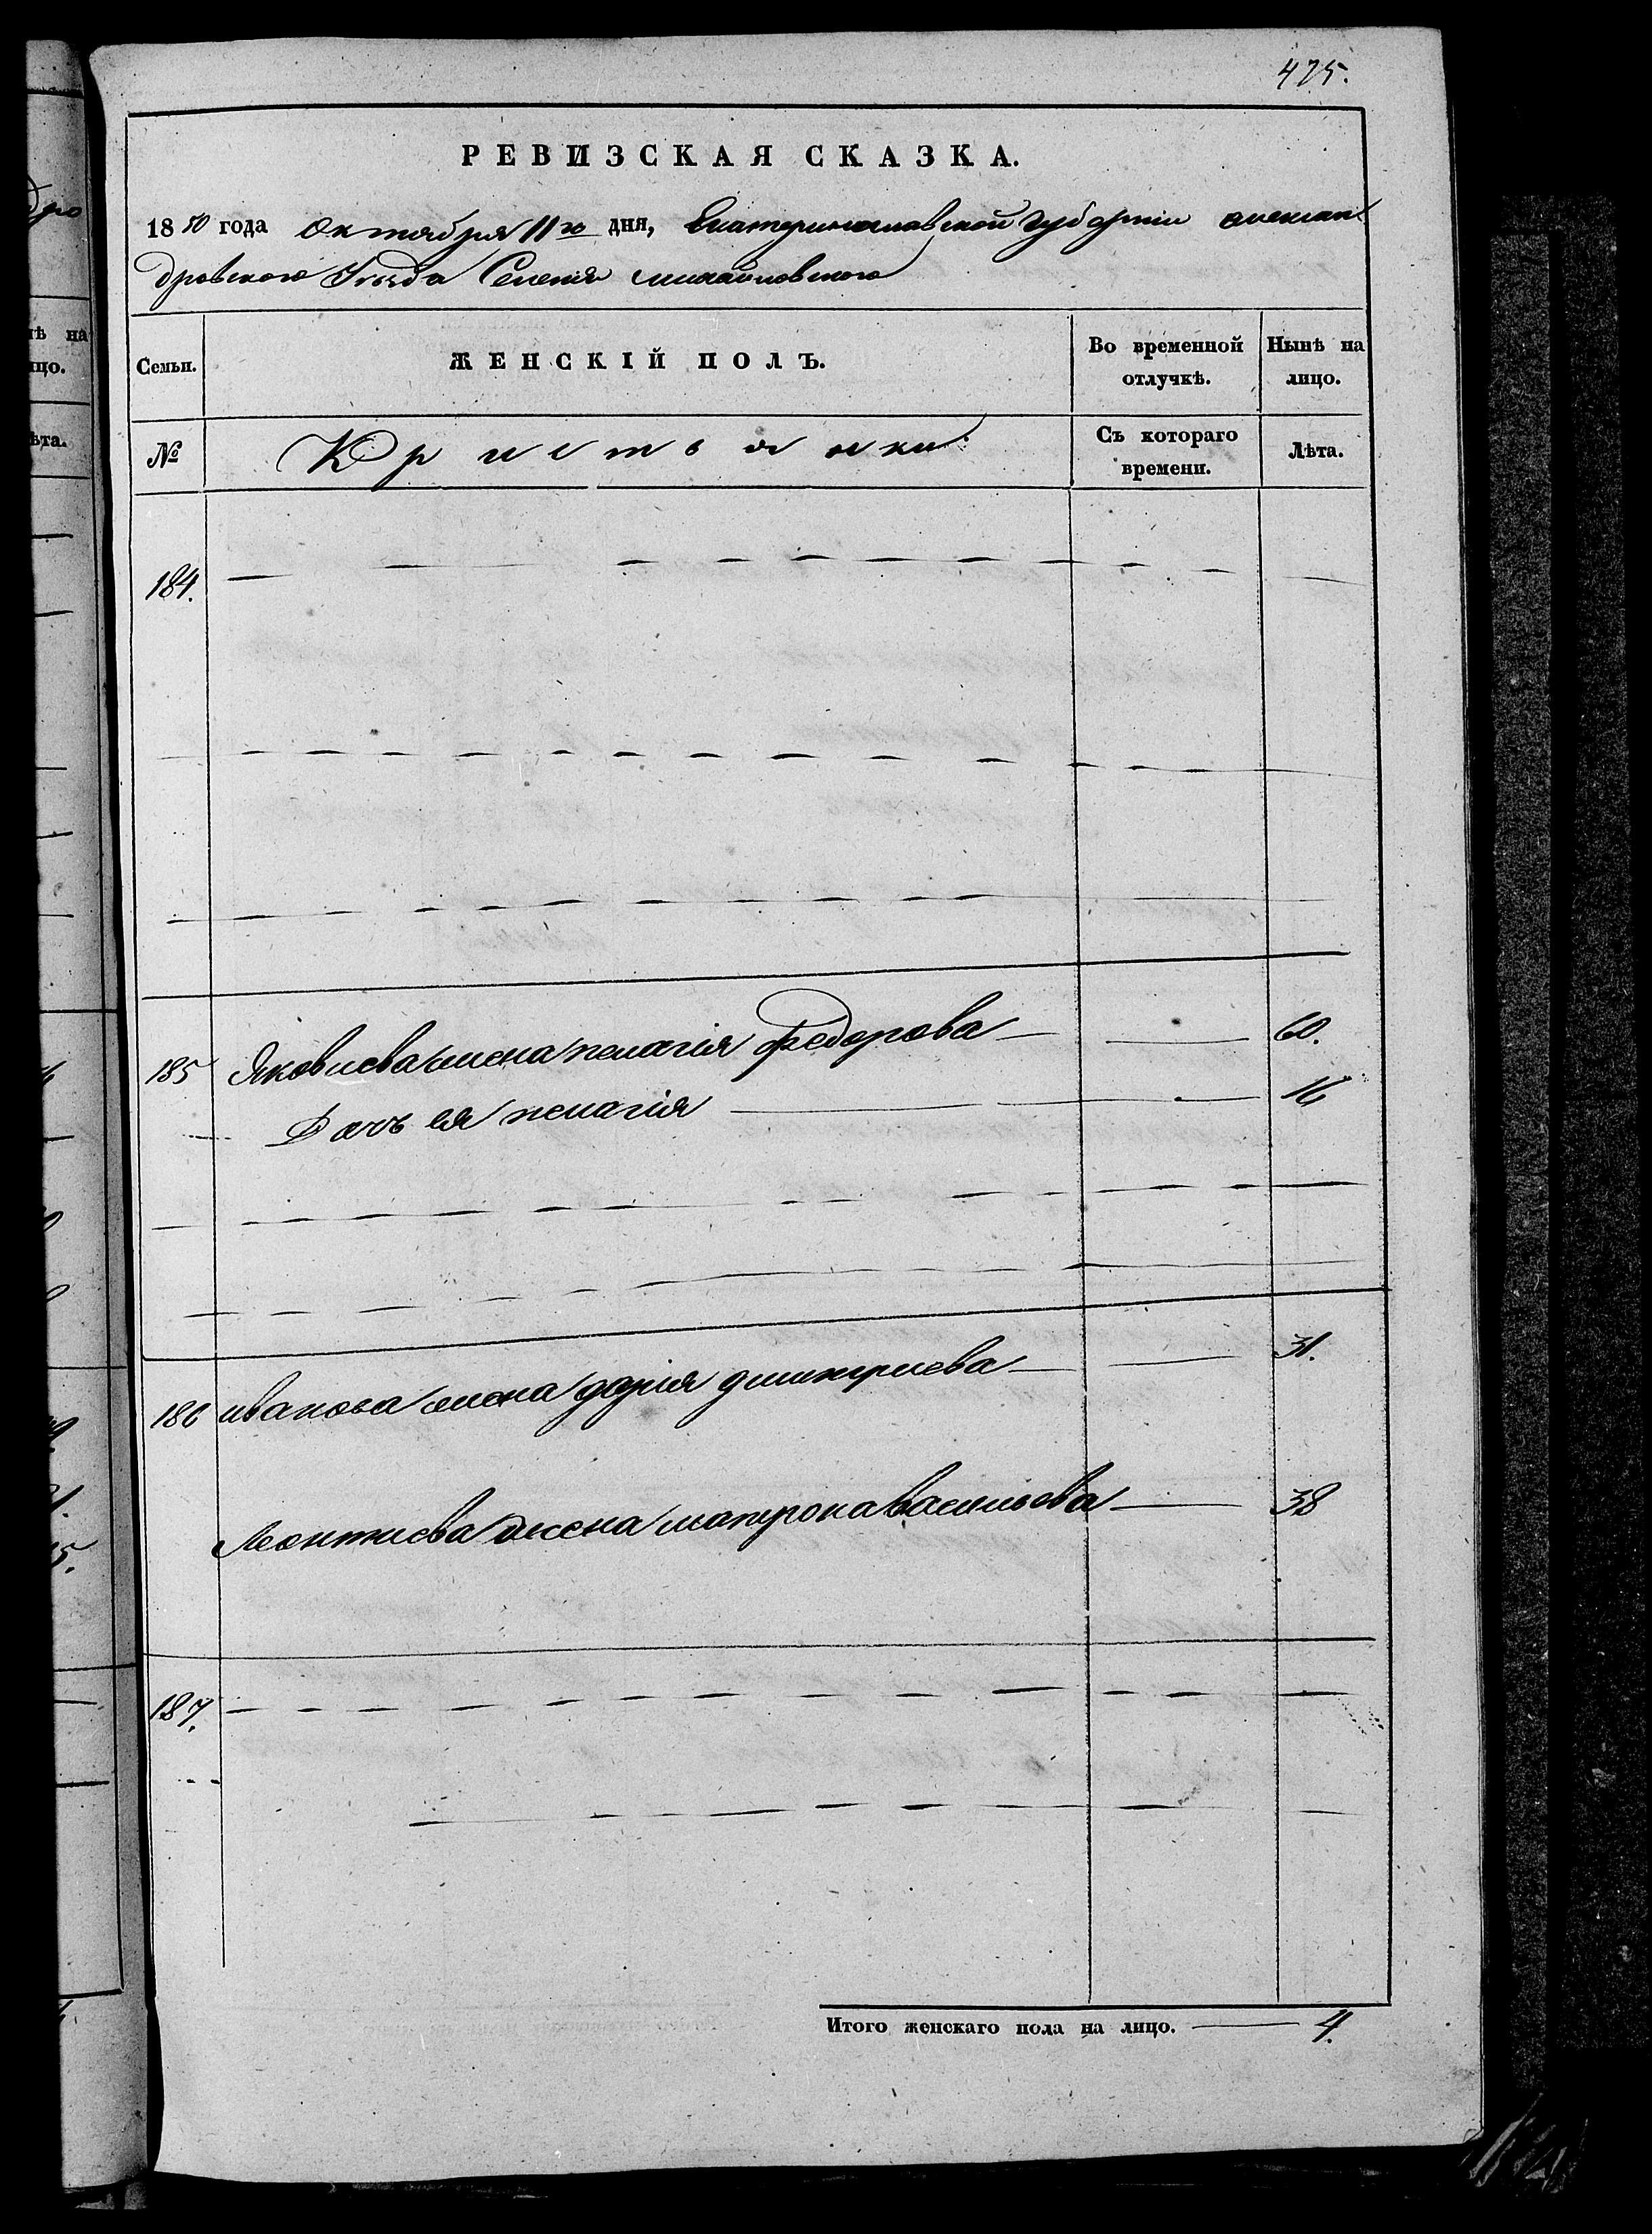 475.
РЕВИЗСКАЯ СКАЗКА.
1850 года Октября 11го дня, Екатеринославской губерніи алексан
дровского Уѣзда Селенія михайловского
Семьи. ЖЕНСКІЙ ПОЛЪ. Во временной отлучкѣ. Нынѣ на лицо.
№ Кристьянки Съ котораго времени. Лѣта.
184.
185 Яковлева жена пелагія федорова 60.
Дочь ея пелагія 16
186 иванова жена дарія дмитриева 31.
Леонтиева жена матрона васильева 38
187.
Итого женскаго пола на лицо. 4.